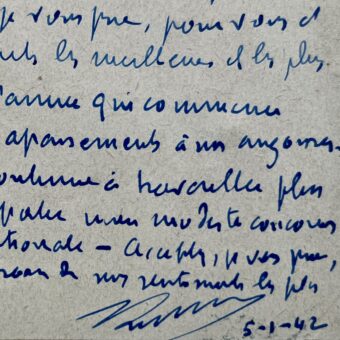 je vous prie, pour vous et
les meilleurs et les plus
l'année qui commence
apaisements à nos angoisses
continue à travailler plus
mon modeste concours
tionale – Acceptez, je vous prie,
de nos sentiments les plus
5-1-42